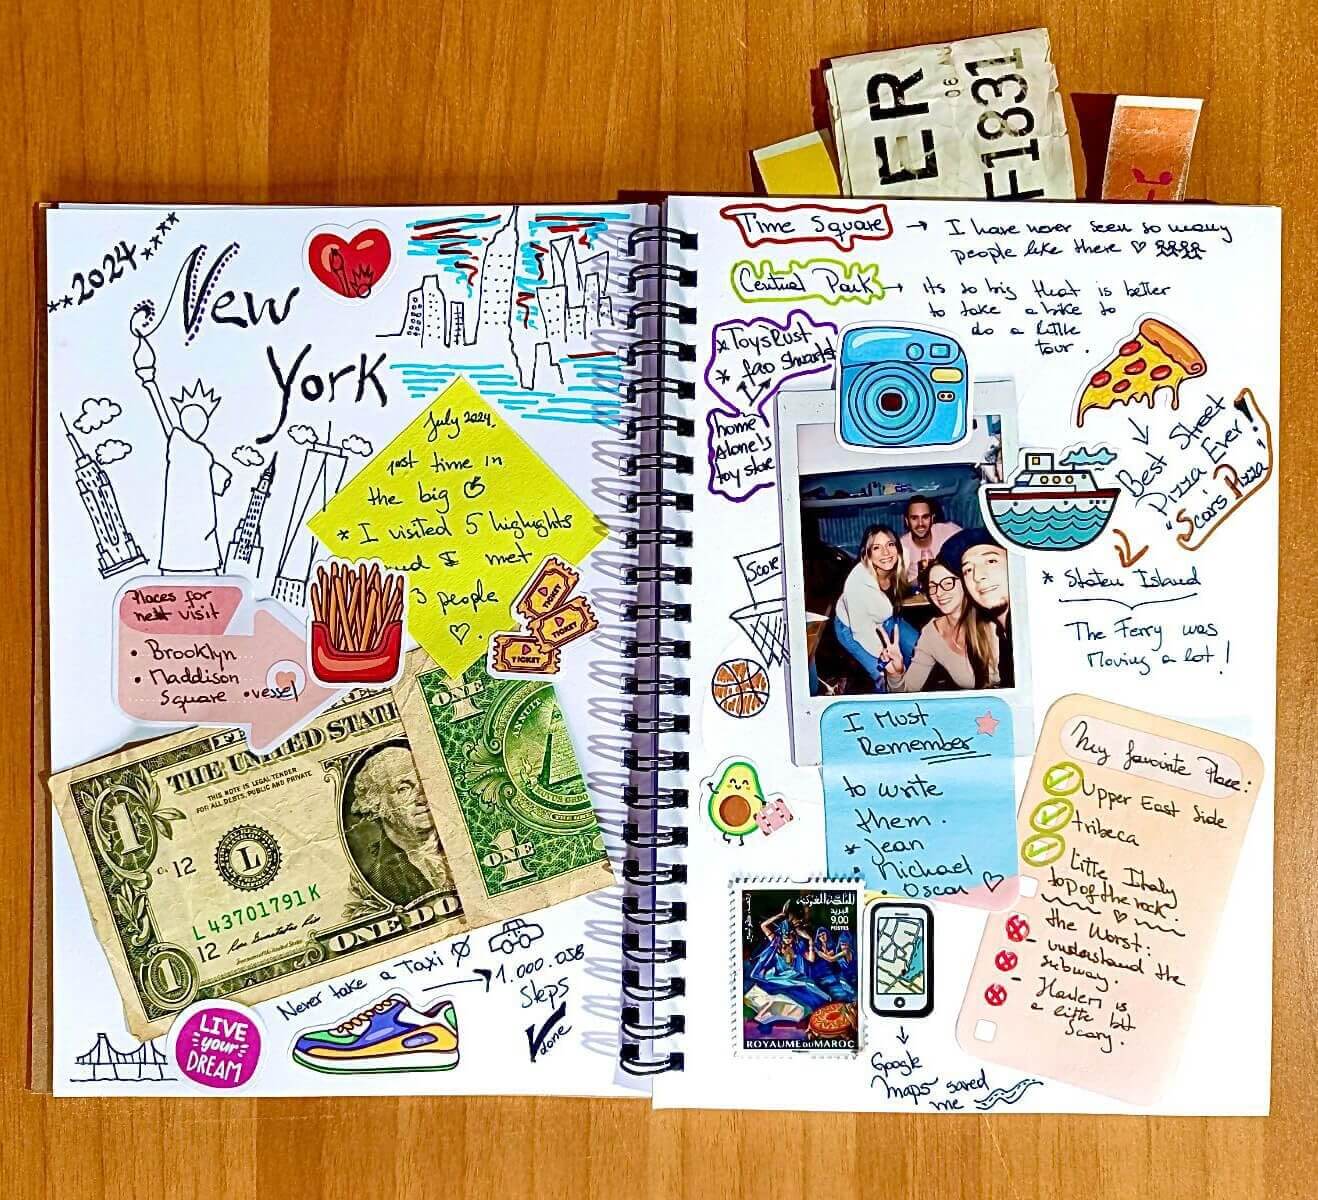 **2024****
New
York
July 2024.
1rst time in
the big
* I visited 5 highlights
and I met
3 people
Places for
next visit
• Brooklyn
• Maddison
Square • vessel
TICKET
TICKET
TICKET
THE UNITED STATE
THIS NOTE IS LEGAL TENDER
FOR ALL DEBTS, PUBLIC AND PRIVATE
1
12
L
L43701791K
12
ONE DO
1
ONE
ANNUIT
ONE
Never take a Taxi → 1.000.058
Steps
done
LIVE
your
DREAM
ER
F1831
Time Square → I have never seen so many
people like there
Central Park → its so big that is better
to take a bike to
do a little
tour.
* Toys'Rust
* fao Shwarts
home
Alone's
toy store
Best Street
Pizza Ever!
"Scars Pizza"
Score
* Staten Island
The Ferry was
Moving a lot!
I Must
Remember
to write
them.
* Jean
• Michael
• Oscar
My favourite Place:
Upper East Side
tribeca
Little Italy
top of the rock.
the Worst:
- understand the
subway.
- Harlem is
a little bit
Scary.
المملكة المغربية
البريد
9,00
POSTES
ROYAUME DU MAROC
Google
Maps saved
me